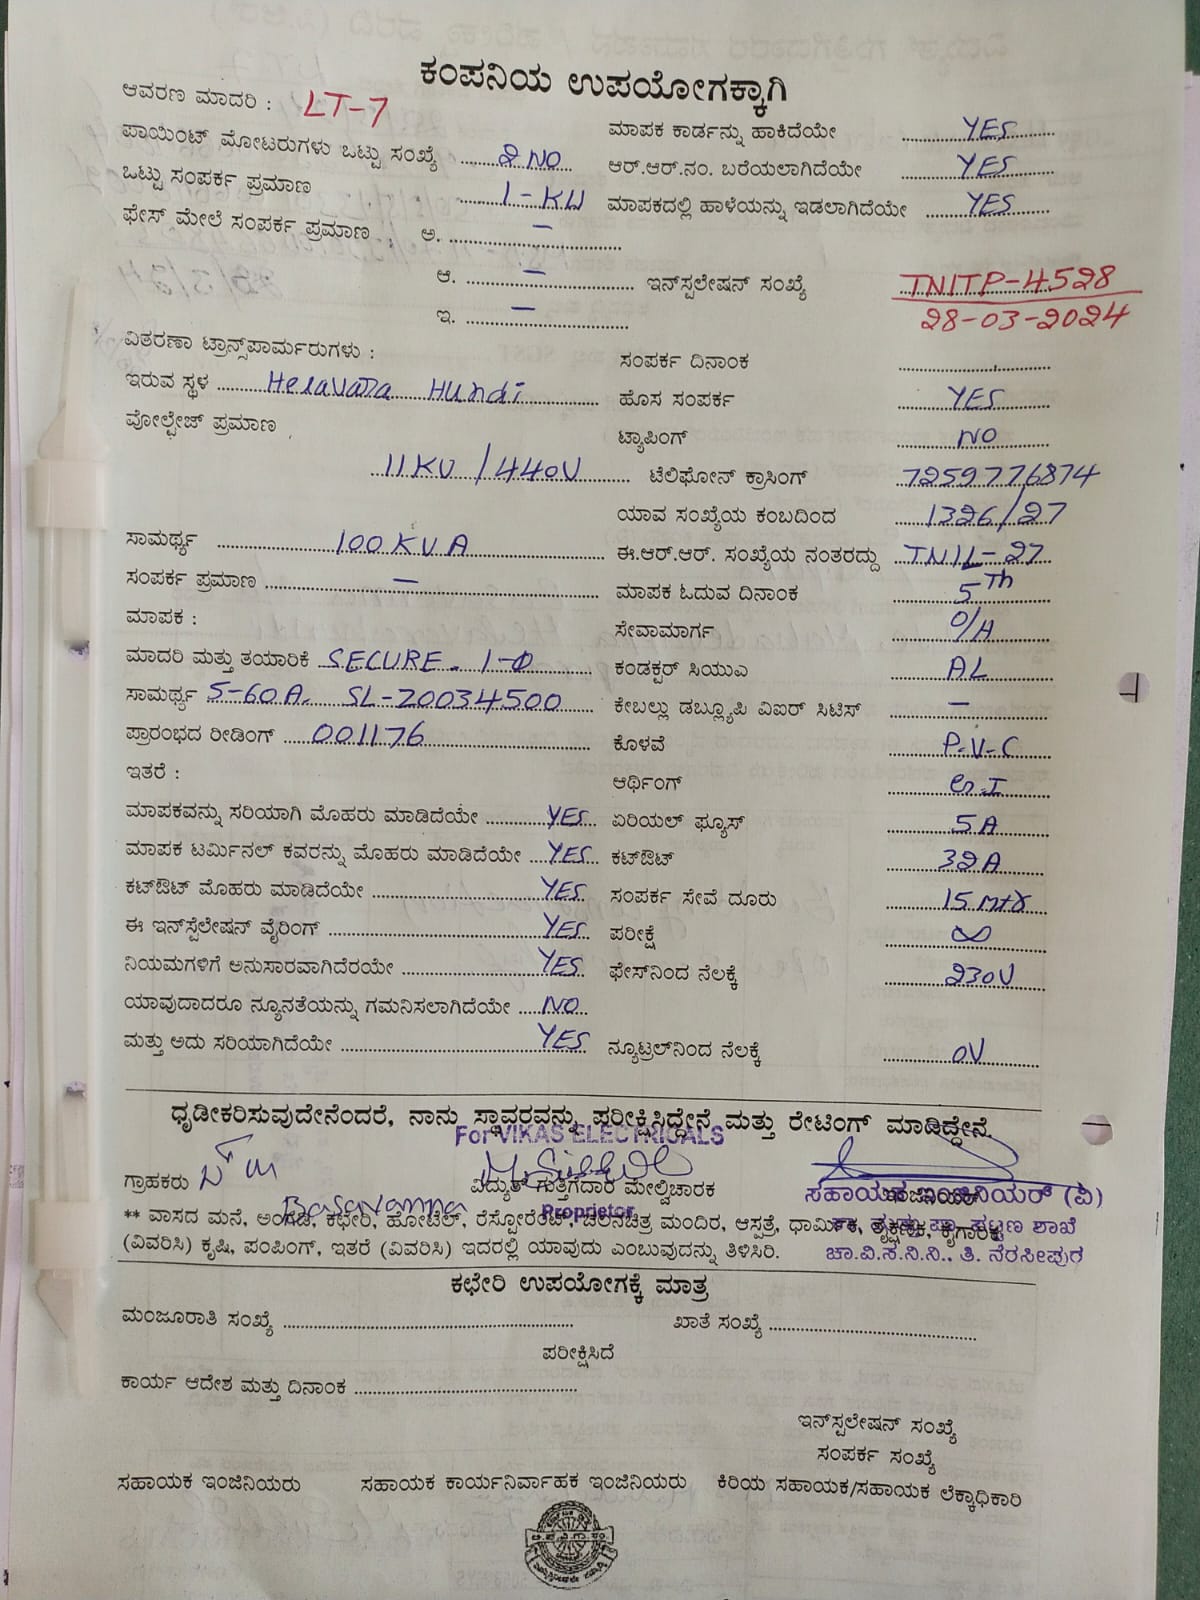 ಕಂಪನಿಯ ಉಪಯೋಗಕ್ಕಾಗಿ
ಆವರಣ ಮಾದರಿ : LT-7
ಮಾಪಕ ಕಾರ್ಡನ್ನು ಹಾಕಿದೆಯೇ YES
ಪಾಯಿಂಟ್ ಮೋಟರುಗಳು ಒಟ್ಟು ಸಂಖ್ಯೆ 2 NO
ಆರ್.ಆರ್.ನಂ. ಬರೆಯಲಾಗಿದೆಯೇ YES
ಒಟ್ಟು ಸಂಪರ್ಕ ಪ್ರಮಾಣ 1-KW
ಮಾಪಕದಲ್ಲಿ ಹಾಳೆಯನ್ನು ಇಡಲಾಗಿದೆಯೇ YES
ಫೇಸ್ ಮೇಲೆ ಸಂಪರ್ಕ ಪ್ರಮಾಣ : ಅ. —
ಆ. — ಇನ್‌ಸ್ಪಲೇಷನ್ ಸಂಖ್ಯೆ TNITP-4528
ಇ. — 28-03-2024
ವಿತರಣಾ ಟ್ರಾನ್ಸ್‌ಪಾರ್ಮರುಗಳು :
ಸಂಪರ್ಕ ದಿನಾಂಕ
ಇರುವ ಸ್ಥಳ Helavara Hundi
ಹೊಸ ಸಂಪರ್ಕ YES
ವೋಲ್ಟೇಜ್ ಪ್ರಮಾಣ
ಟ್ಯಾಪಿಂಗ್ NO
11KV / 440V ಟೆಲಿಫೋನ್ ಕ್ರಾಸಿಂಗ್ 7259776874
ಯಾವ ಸಂಖ್ಯೆಯ ಕಂಬದಿಂದ 1326/27
ಸಾಮರ್ಥ್ಯ 100 KVA
ಈ.ಆರ್.ಆರ್. ಸಂಖ್ಯೆಯ ನಂತರದ್ದು TNIL-27
ಸಂಪರ್ಕ ಪ್ರಮಾಣ —
ಮಾಪಕ ಓದುವ ದಿನಾಂಕ 5Th
ಮಾಪಕ :
ಸೇವಾಮಾರ್ಗ O/H
ಮಾದರಿ ಮತ್ತು ತಯಾರಿಕೆ SECURE. 1-Φ
ಕಂಡಕ್ಟರ್ ಸಿಯುಎ AL
ಸಾಮರ್ಥ್ಯ 5-60A. SL-20034500
ಕೇಬಲ್ಲು ಡಬ್ಲ್ಯೂಪಿ ವಿಐರ್ ಸಿಟಿಸ್ —
ಪ್ರಾರಂಭದ ರೀಡಿಂಗ್ 001176
ಕೊಳವೆ P.V-C
ಇತರೆ :
ಆರ್ಥಿಂಗ್ G.I
ಮಾಪಕವನ್ನು ಸರಿಯಾಗಿ ಮೊಹರು ಮಾಡಿದೆಯೇ YES
ಏರಿಯಲ್ ಫ್ಯೂಸ್ 5A
ಮಾಪಕ ಟರ್ಮಿನಲ್ ಕವರನ್ನು ಮೊಹರು ಮಾಡಿದೆಯೇ YES
ಕಟ್‌ಔಟ್ 32A
ಕಟ್‌ಔಟ್ ಮೊಹರು ಮಾಡಿದೆಯೇ YES
ಸಂಪರ್ಕ ಸೇವೆ ದೂರು 15 mtr
ಈ ಇನ್‌ಸ್ಪೆಲೇಷನ್ ವೈರಿಂಗ್ YES
ಪರೀಕ್ಷೆ ∞
ನಿಯಮಗಳಿಗೆ ಅನುಸಾರವಾಗಿದೆರಯೇ YES
ಫೇಸ್‌ನಿಂದ ನೆಲಕ್ಕೆ 230V
ಯಾವುದಾದರೂ ನ್ಯೂನತೆಯನ್ನು ಗಮನಿಸಲಾಗಿದೆಯೇ NO
ಮತ್ತು ಅದು ಸರಿಯಾಗಿದೆಯೇ YES
ನ್ಯೂಟ್ರಲ್‌ನಿಂದ ನೆಲಕ್ಕೆ 0V
ಧೃಡೀಕರಿಸುವುದೇನೆಂದರೆ, ನಾನು ಸ್ಥಾವರವನ್ನು ಪರೀಕ್ಷಿಸಿದ್ದೇನೆ ಮತ್ತು ರೇಟಿಂಗ್ ಮಾಡಿದ್ದೇನೆ.
For VIKAS ELECTRICALS
ಗ್ರಾಹಕರು
ವಿದ್ಯುತ್ ಗುತ್ತಿಗೆದಾರ ಮೇಲ್ವಿಚಾರಕ
ಸಹಾಯಕ ಇಂಜಿನಿಯರ್ (ವಿ)
Basavanna
Proprietor
** ವಾಸದ ಮನೆ, ಅಂಗಡಿ, ಕಛೇರಿ, ಹೋಟೆಲ್, ರೆಸ್ಟೋರೆಂಟ್, ಚಲನಚಿತ್ರ ಮಂದಿರ, ಆಸ್ಪತ್ರೆ, ಧಾರ್ಮಿಕ, ಕೈಗಾರಿಕೆ
ಪಟ್ಟಣ ಶಾಖೆ
(ವಿವರಿಸಿ) ಕೃಷಿ, ಪಂಪಿಂಗ್, ಇತರೆ (ವಿವರಿಸಿ) ಇದರಲ್ಲಿ ಯಾವುದು ಎಂಬುವುದನ್ನು ತಿಳಿಸಿರಿ.
ಚಾ.ವಿ.ಸ.ನಿ.ನಿ., ತಿ. ನರಸೀಪುರ
ಕಛೇರಿ ಉಪಯೋಗಕ್ಕೆ ಮಾತ್ರ
ಮಂಜೂರಾತಿ ಸಂಖ್ಯೆ
ಖಾತೆ ಸಂಖ್ಯೆ
ಪರೀಕ್ಷಿಸಿದೆ
ಕಾರ್ಯ ಆದೇಶ ಮತ್ತು ದಿನಾಂಕ
ಇನ್‌ಸ್ಪಲೇಷನ್ ಸಂಖ್ಯೆ
ಸಂಪರ್ಕ ಸಂಖ್ಯೆ
ಸಹಾಯಕ ಇಂಜಿನಿಯರು ಸಹಾಯಕ ಕಾರ್ಯನಿರ್ವಾಹಕ ಇಂಜಿನಿಯರು ಕಿರಿಯ ಸಹಾಯಕ/ಸಹಾಯಕ ಲೆಕ್ಕಾಧಿಕಾರಿ